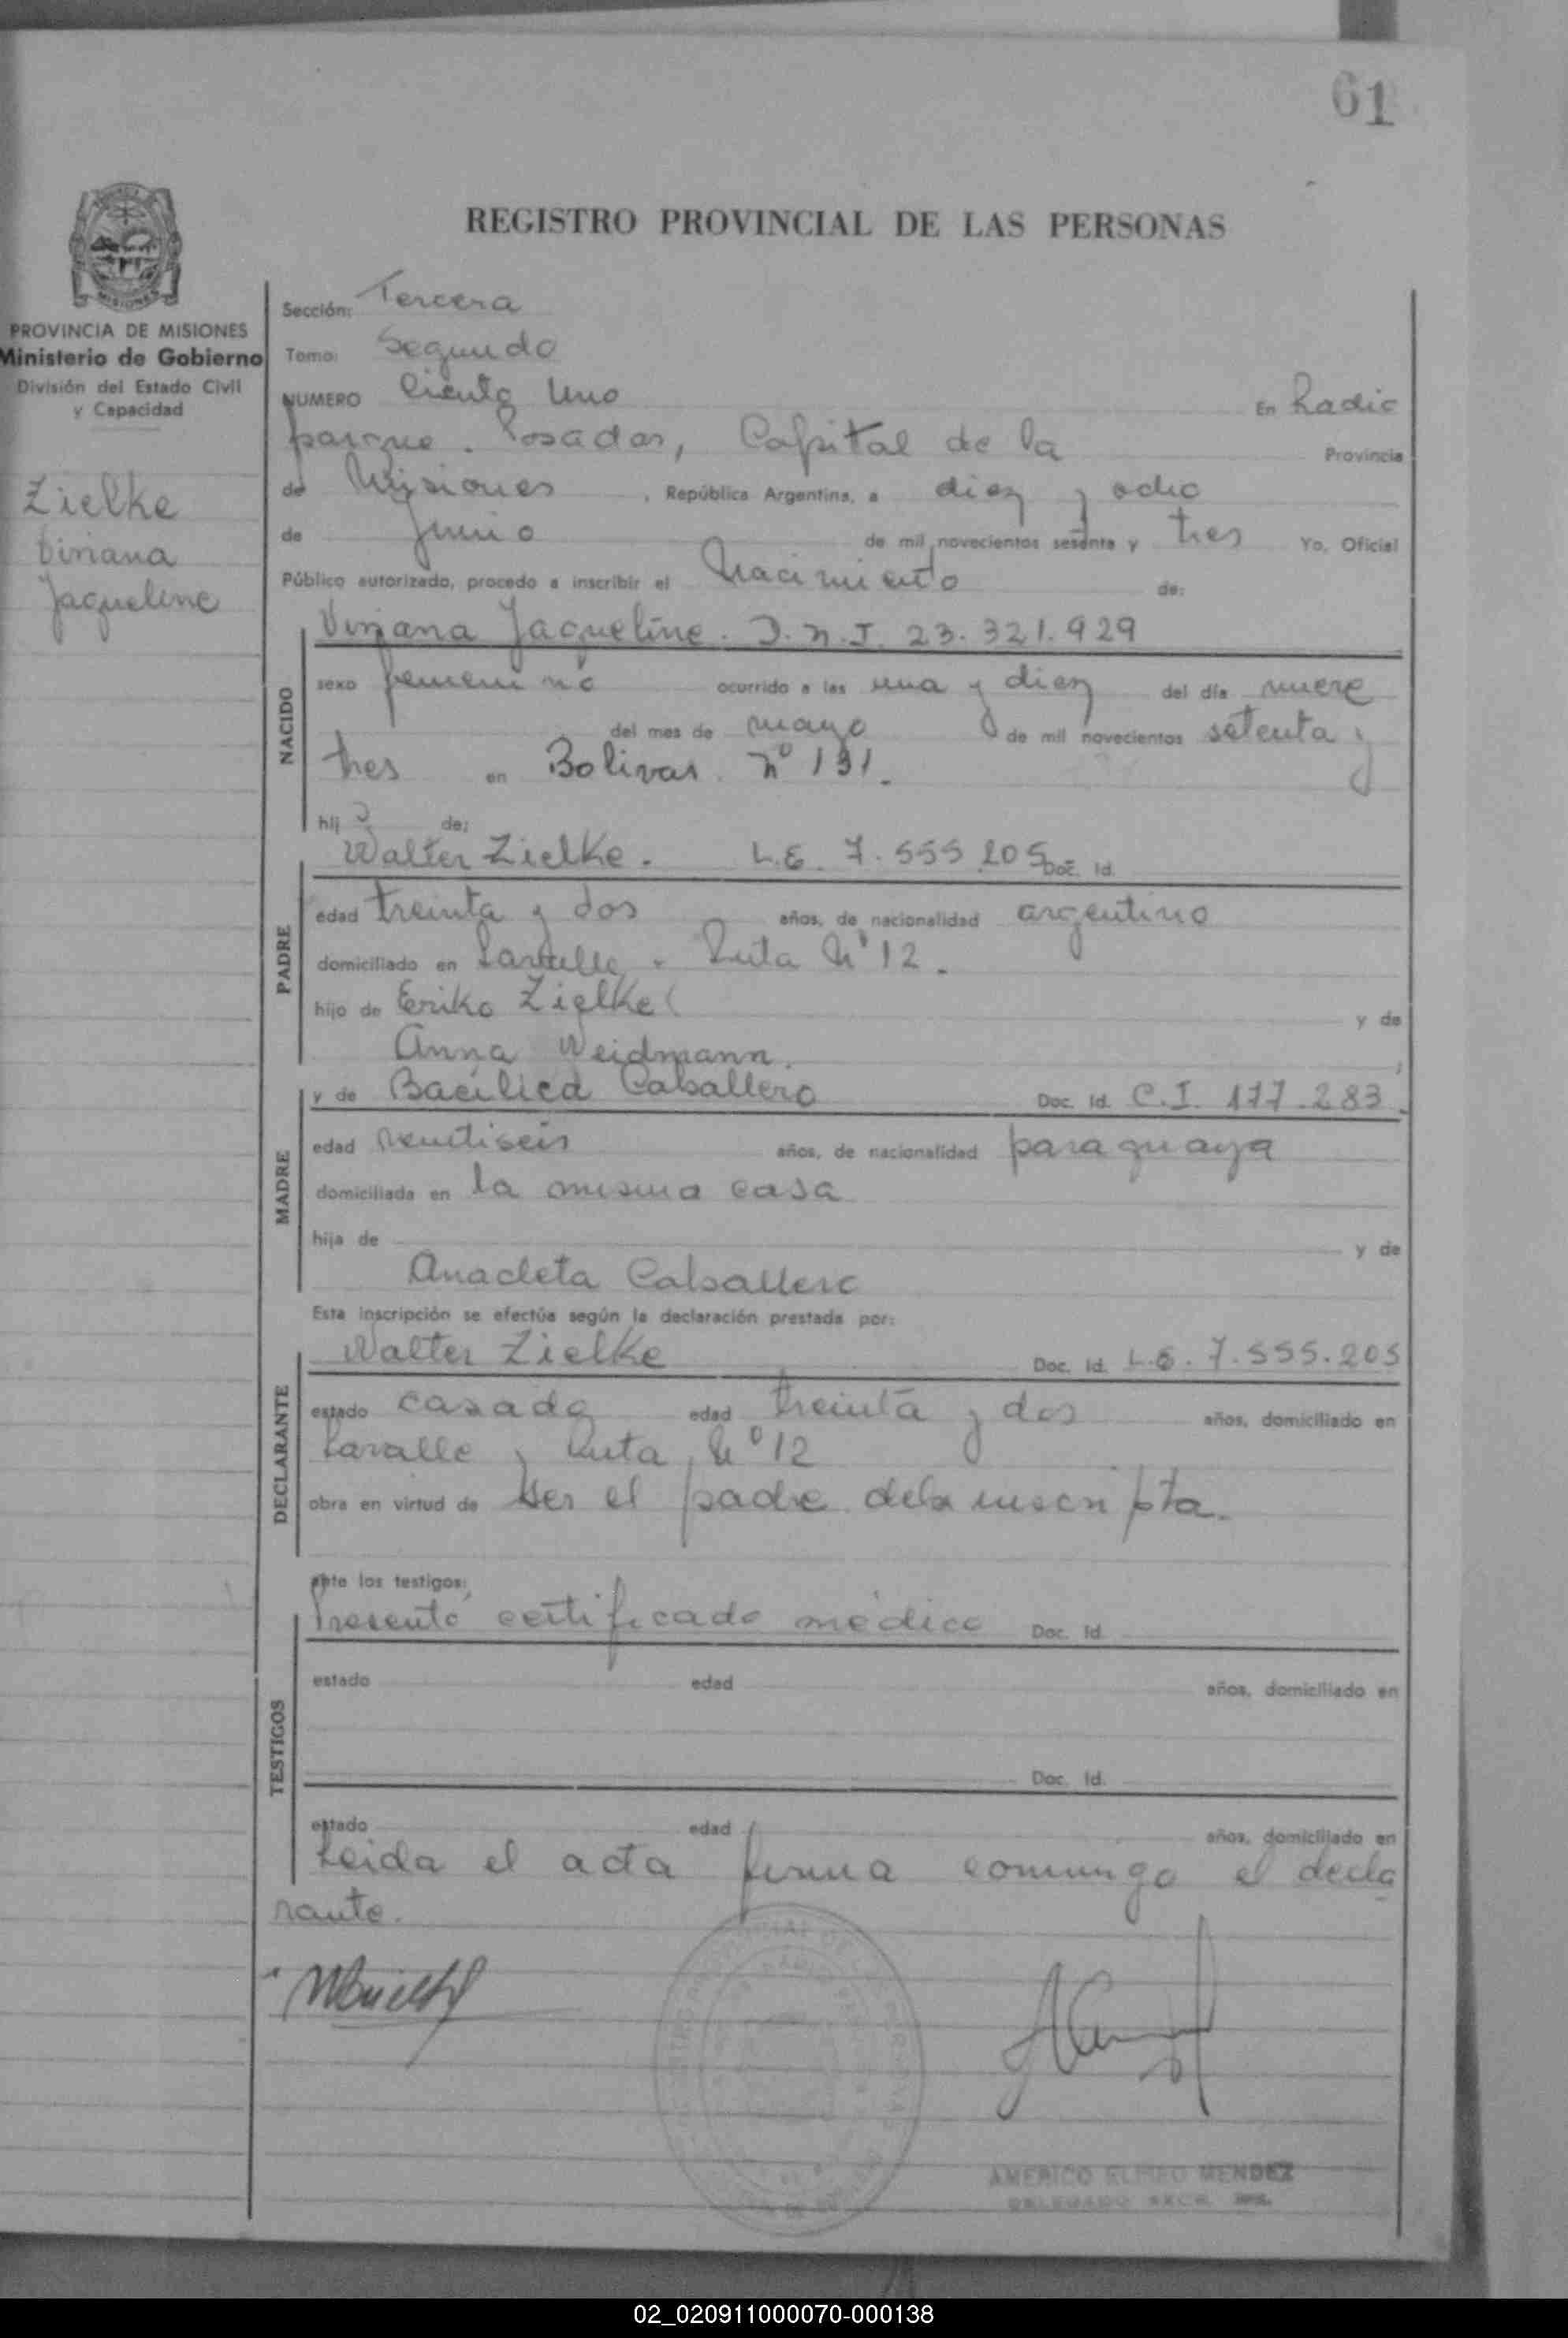 61
REGISTRO PROVINCIAL DE LAS PERSONAS
MISIONES
PROVINCIA DE MISIONES
Ministerio de Gobierno
División del Estado Civil
y Capacidad
Zielke
Viviana
Jaqueline
Sección: Tercera
Tomo: Segundo
NUMERO Ciento Uno En Radio
parque. Posadas, Capital de la Provincia
de Misiones, República Argentina, a diez y ocho
de junio de mil novecientos sesenta y tres Yo, Oficial
Público autorizado, procedo a inscribir el Nacimiento de:
NACIDO
Viviana Jaqueline. D.N.I. 23.321.929
sexo femenino ocurrido a las una y diez del día nueve
del mes de mayo de mil novecientos setenta y
tres en Bolivar Nº 191.
hij a de:
PADRE
Walter Zielke. L.E. 7.555.205 Doc. Id.
edad treinta y dos años, de nacionalidad argentino
domiciliado en Lavalle y Ruta Nº 12.
hijo de Eriko Zielke y de
Anna Weidmann.
MADRE
y de Bacilica Caballero Doc. Id. C.I. 177.283.
edad veintiseis años, de nacionalidad paraguaya
domiciliada en la misma casa
hija de y de
Anacleta Caballero
Esta inscripción se efectúa según la declaración prestada por:
DECLARANTE
Walter Zielke Doc. Id. L.E. 7.555.205
estado casado edad treinta y dos años, domiciliado en
Lavalle y Ruta Nº 12
obra en virtud de ser el padre dela inscripta.
ante los testigos:
TESTIGOS
Presentó certificado médico Doc. Id.
estado edad años, domiciliado en
Doc. Id.
estado edad años, domiciliado en
Leida el acta firma conmingo el decla
rante.
AMERICO ELISEO MENDEZ
DELEGADO
02_020911000070-000138